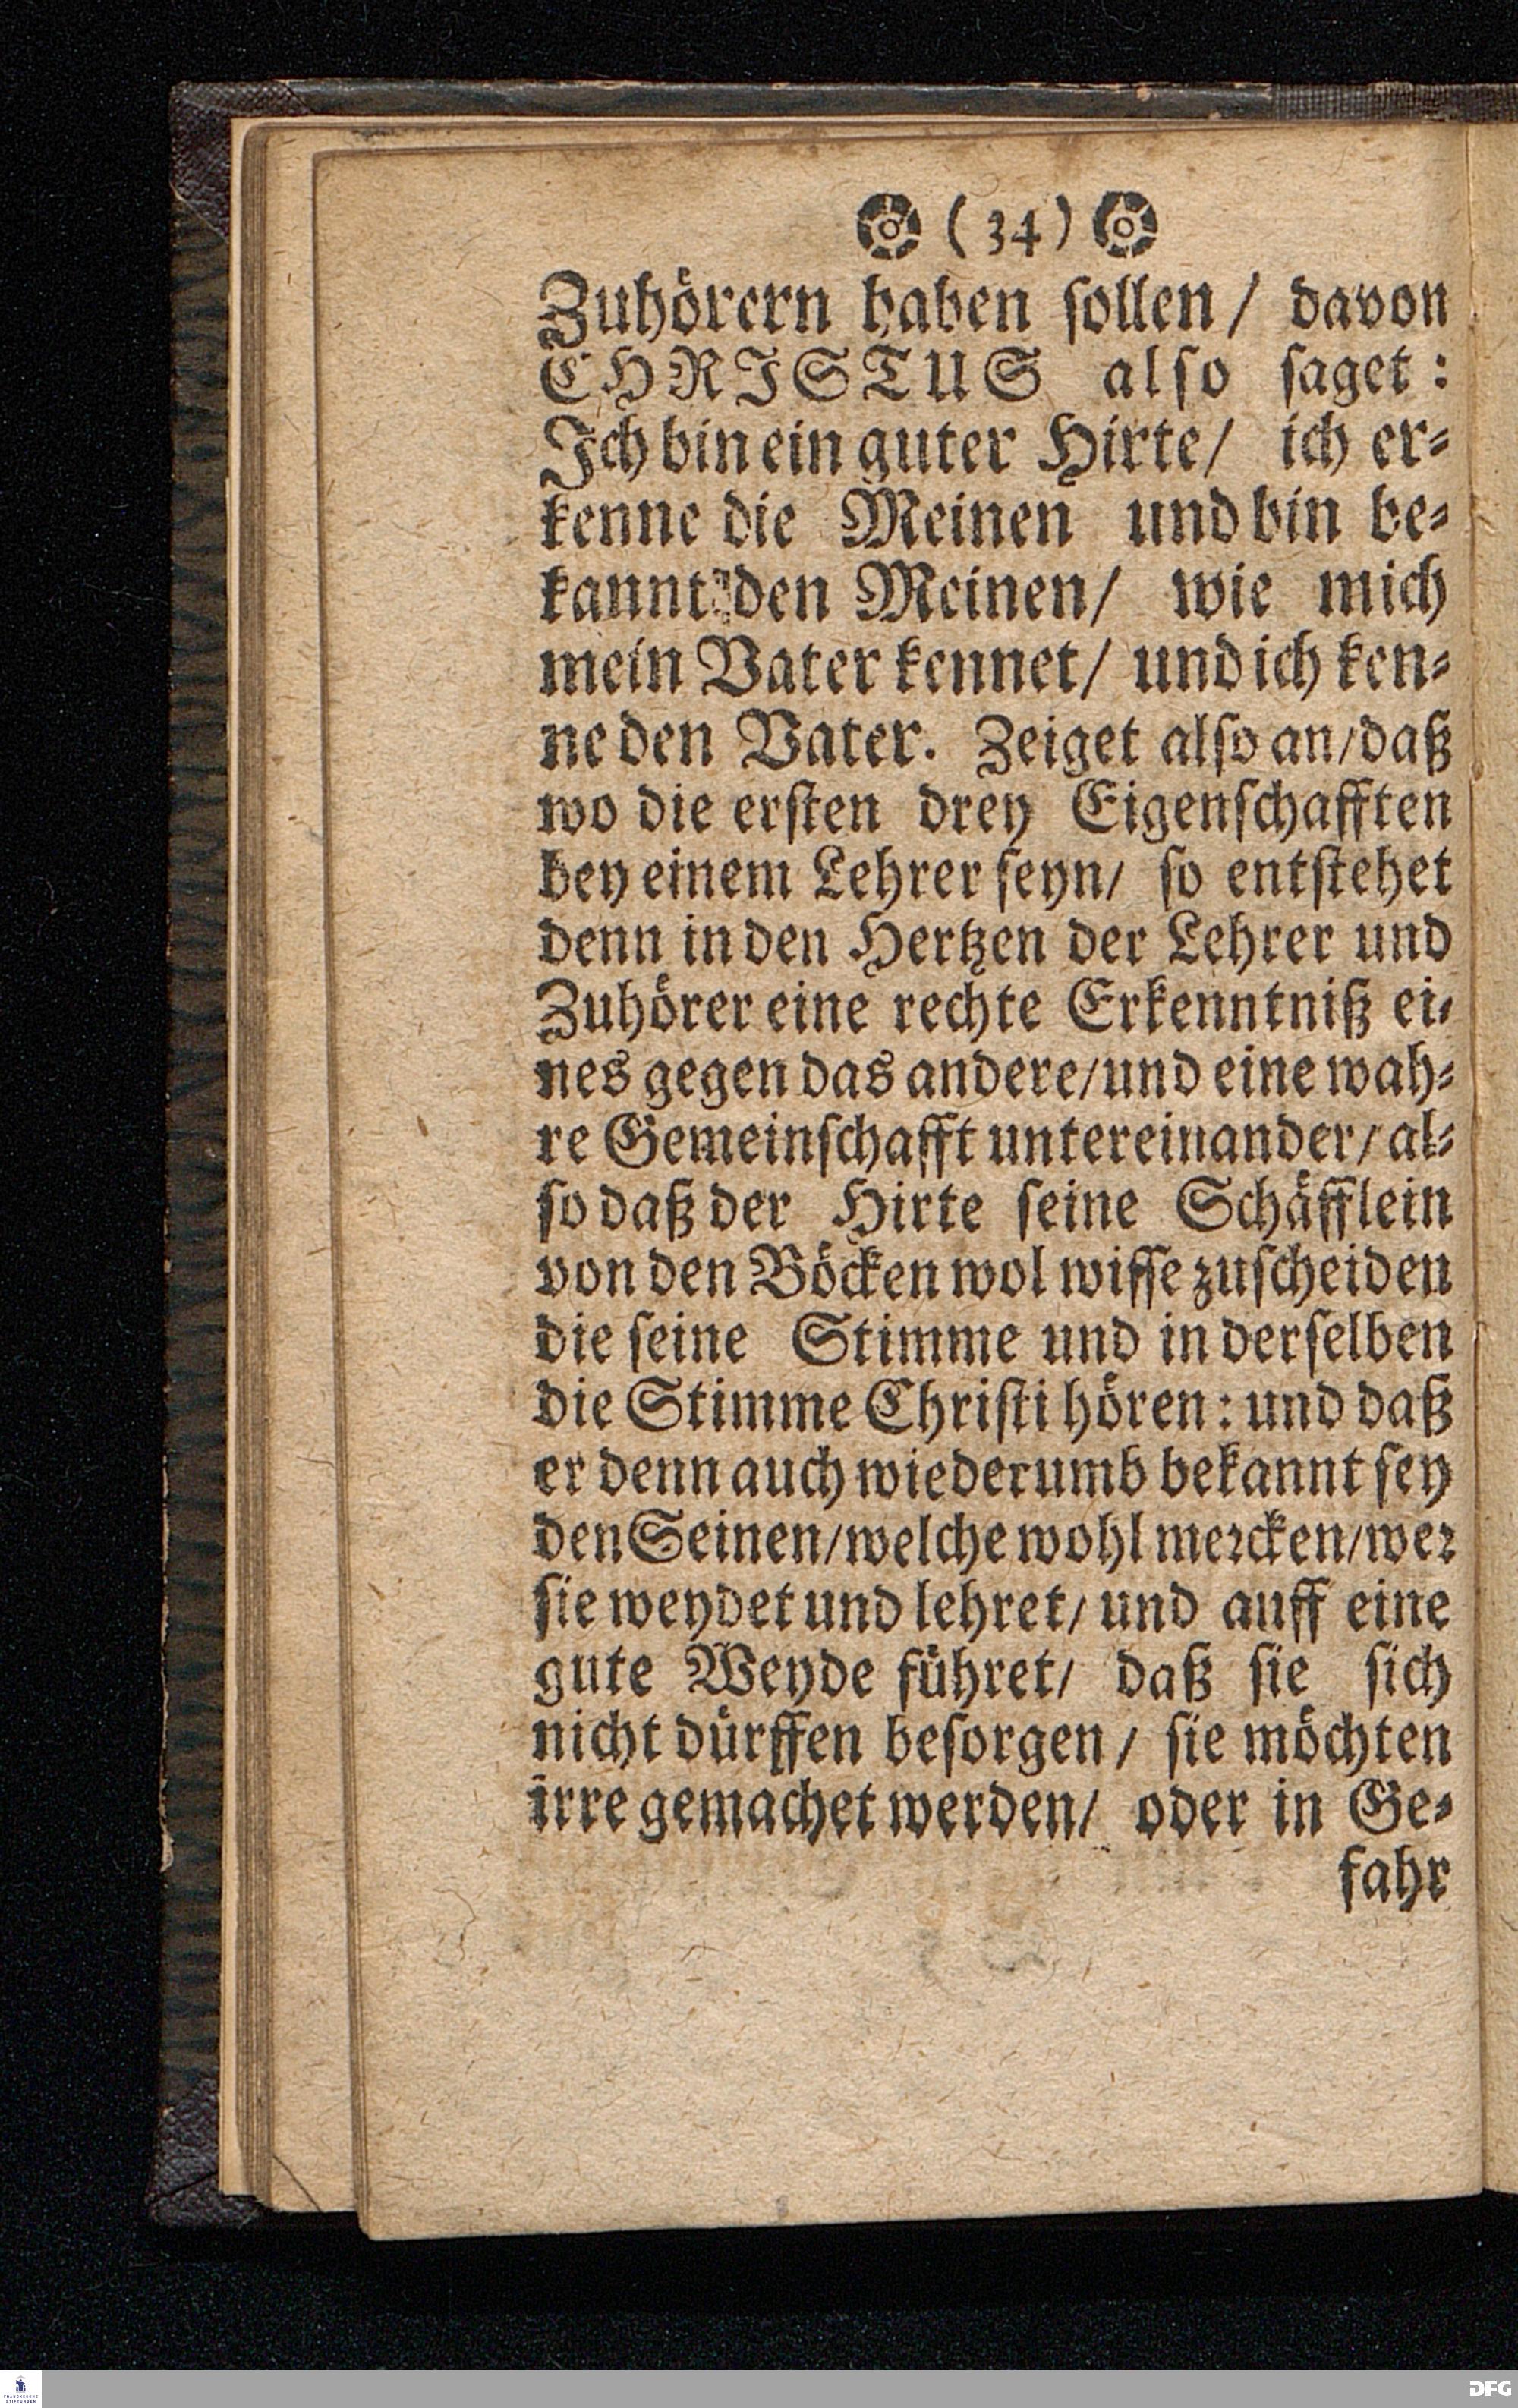 (34)
Zuhörern haben sollen/ davon
CHRISTUS also saget:
Ich bin ein guter Hirte/ ich er-
kenne die Meinen und bin be-
kannt den Meinen/ wie mich
mein Vater kennet/ und ich ken-
ne den Vater. Zeiget also an/daß
wo die ersten drey Eigenschafften
bey einem Lehrer seyn/ so entstehet
denn in den Hertzen der Lehrer und
Zuhörer eine rechte Erkenntniß ei-
nes gegen das andere/und eine wah-
re Gemeinschafft untereinander/al-
so daß der Hirte seine Schäfflein
von den Böcken wol wisse zuscheiden
die seine Stimme und in derselben
die Stimme Christi hören: und daß
er denn auch wiederumb bekannt sey
den Seinen/welche wohl mercken/wer
sie weydet und lehret/ und auff eine
gute Weyde führet/ daß sie sich
nicht dürffen besorgen/ sie möchten
irre gemachet werden/ oder in Ge-
fahr
FRANCKESCHE
STIFTUNGEN
DFG